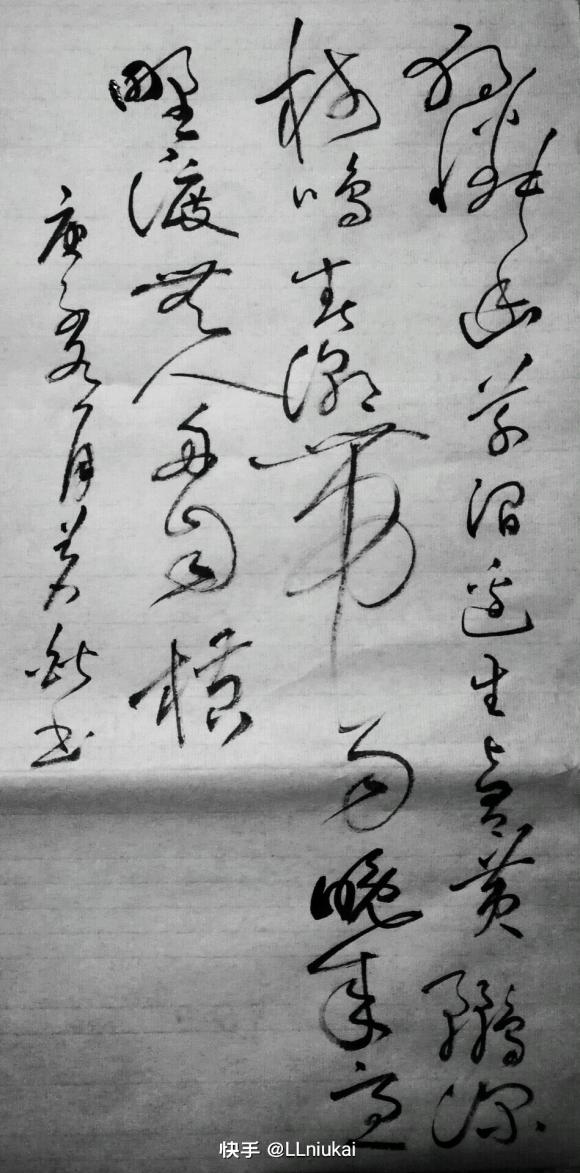 独憐幽草涧邊生上有黄鸝深
树鳴春潮带雨晚来急
野渡無人舟自横
庚子 月 书
快手 @LLniukai